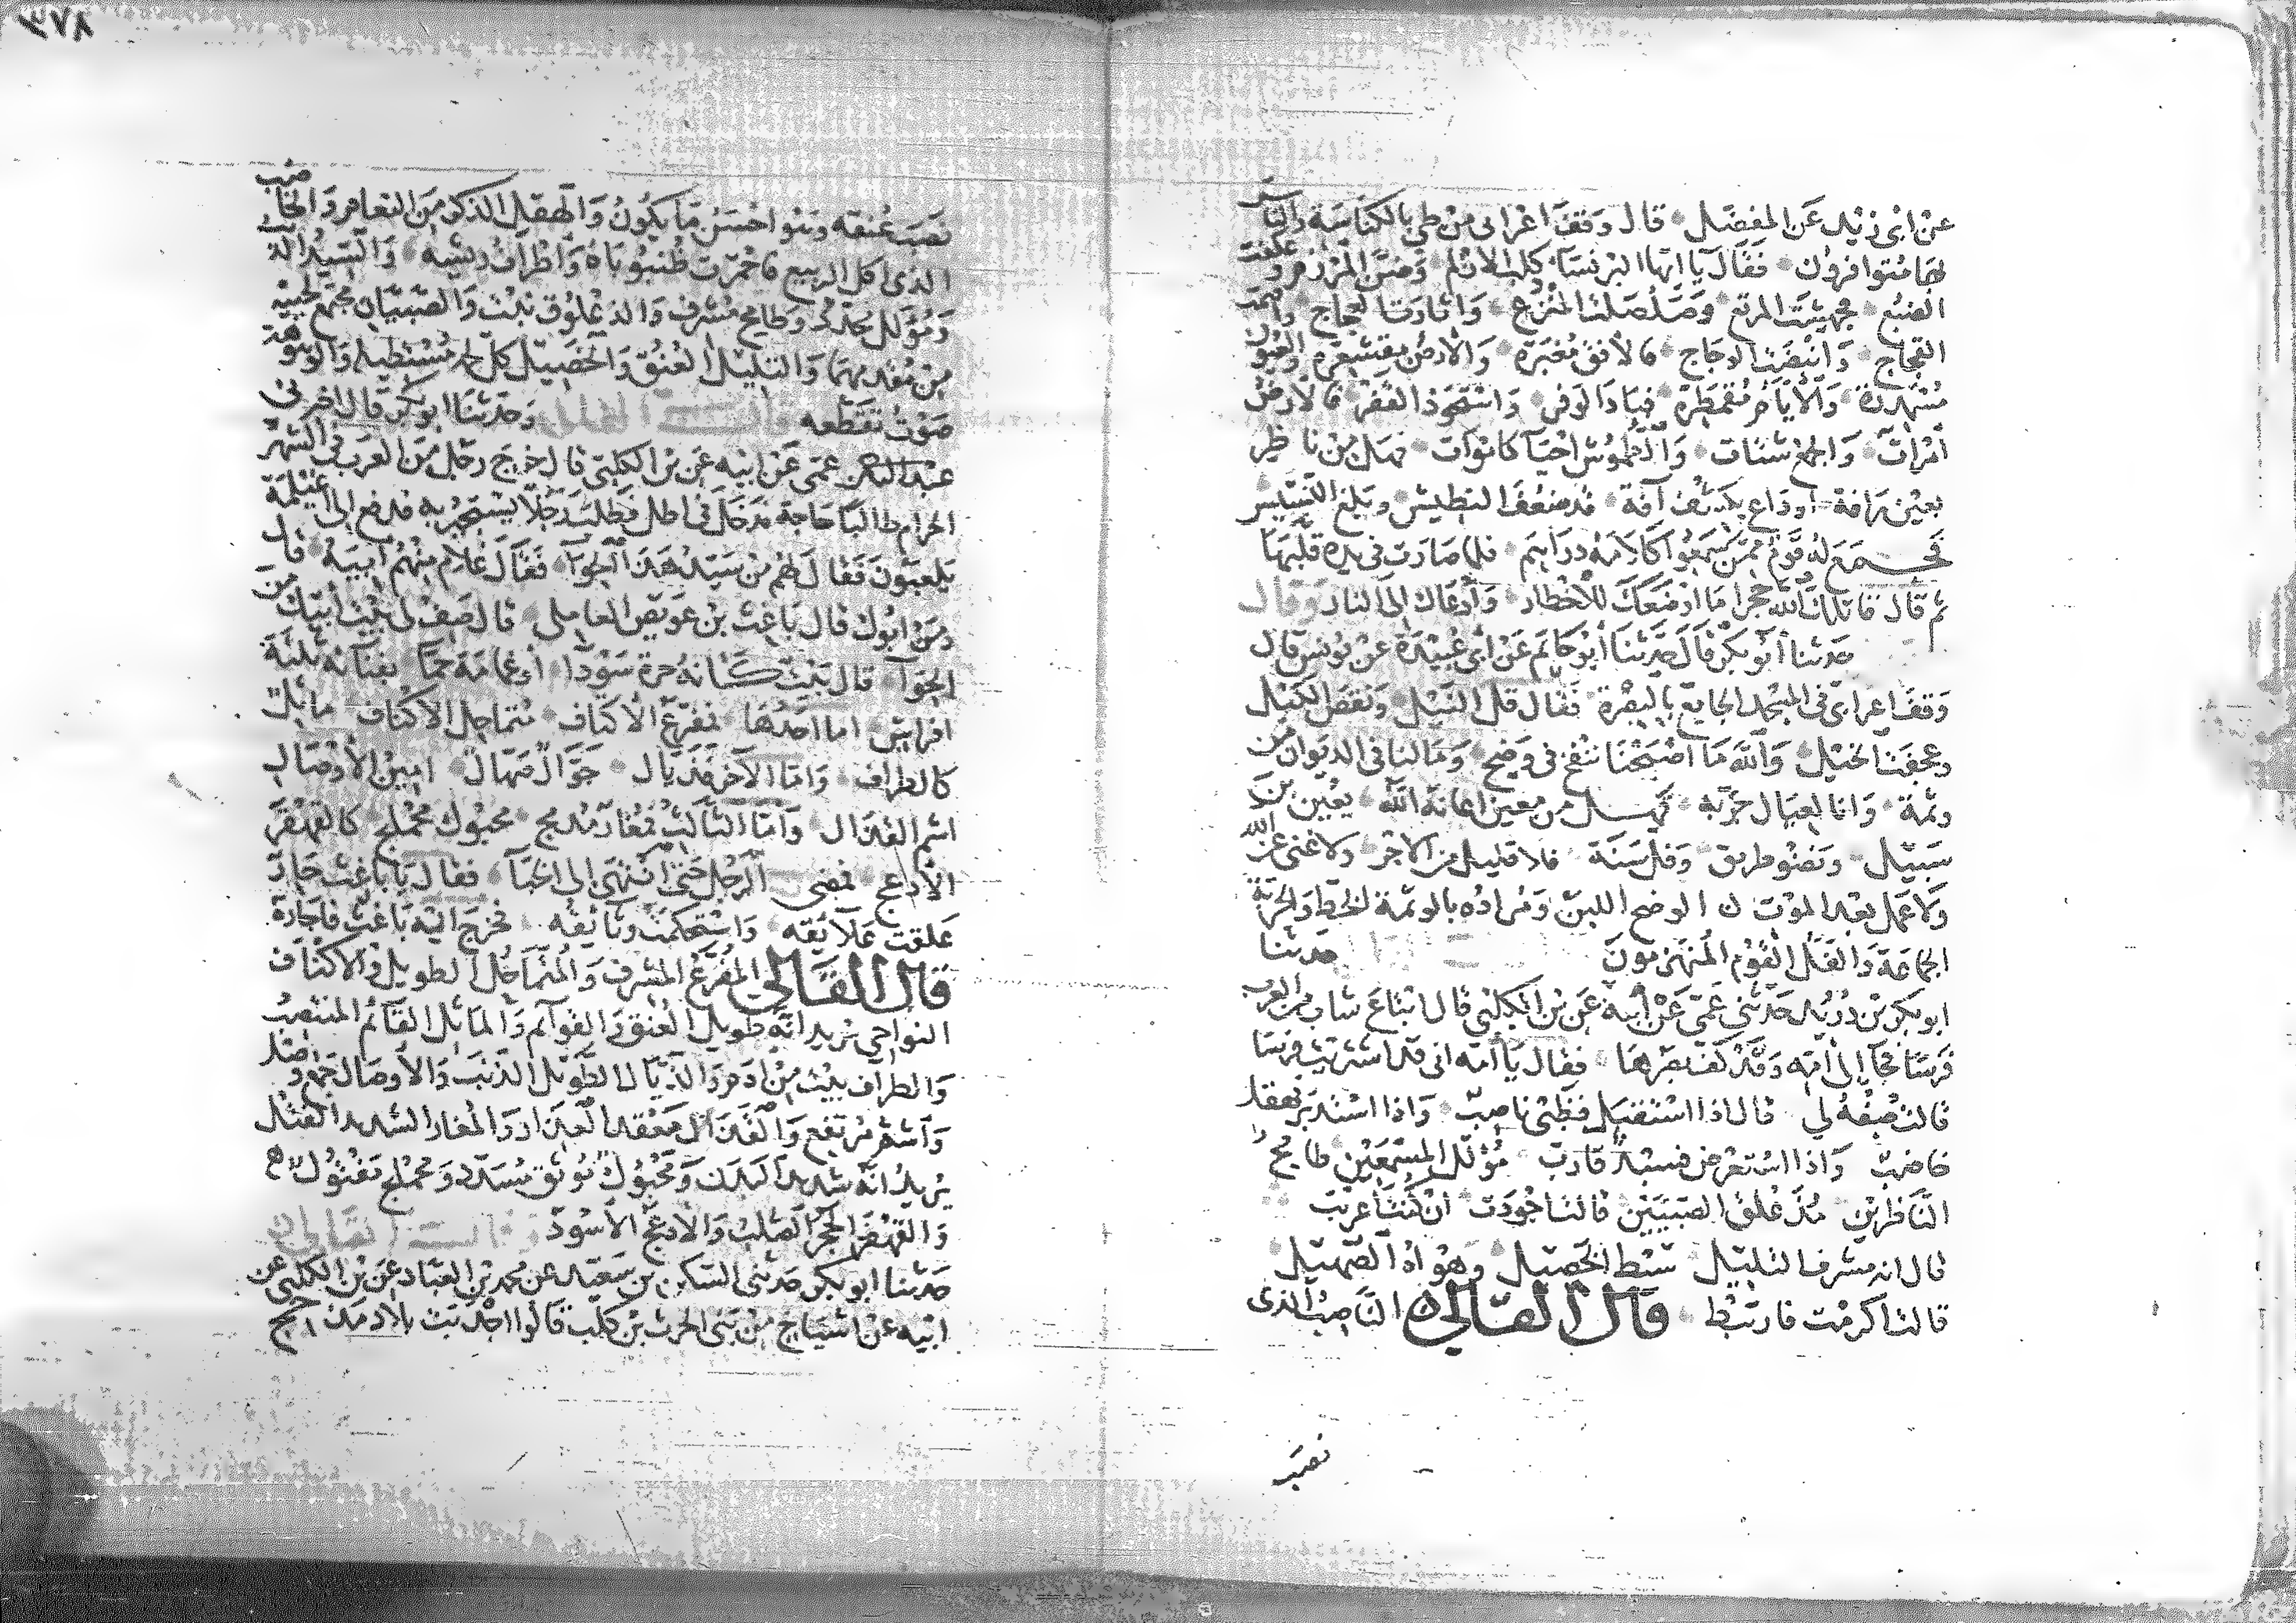 عن ابى زيد عن المفضل قال وقف اعرابى من طى بالكناسة والناس
بها متوافرون فقال يا ايها البرنسا كلب الازلم وضن المرزم و علقت
الضبع مجهشت المرتع وصلصلت المنزع واثارت العجاج واقتمت
الفجاج وانبضت الوجاج فالافق مغبرة والارض مقشعرة والعيون
مسمهدرة والايام مقمطرة فباد الوفر واستحوذ الفقر فالارض
امرات والجمع شتات والطموش احيا كاموات فهل من ناظر
بعين رافة او داع بكشف آفة قد ضعف النطيش وبلغ النسيس
فجمع له قوم ممن سمعوا كلامه دراهم فلما صارت فى يده قلبها
ثم قال قاتلك الله حجرا ما اوضعك للاخطار وادعاك الى النار وقال
حدثنا ابو بكر قال حدثنا ابو حاتم عن ابى عبيدة عن يونس قال
وقف اعرابى فى المسجد الجامع بالبصرة فقال قل النيل ونقص الكيل
وعجفت الخيل والله ما اصبحنا ننفخ فى وضح وما لنا فى الديوان من
وشمة وانا لعيال جربة فهل من معين اعانه الله يعين بن
سبيل ونضو طريق وفل سنة فلا قليل من الاجر ولا غنى عن الله
ولا عمل بعد الموت ن الوضح اللبن ومراده بالوشمة الخط والجربة
الجماعة والفل القوم المنهزمون حدثنا
ابو بكر بن دريد حدثنى عمى عن ابيه عن بن الكلبى قال ابتاع شاب من العرب
فرسا فجا الى امه وقد كف بصرها فقال يا امه انى قد اشتريت فرسا
قالت صفه لى قال اذا استقبل فظبى ناصب واذا استدبر فهقل
خاضب واذا استعرض فسيد قارب مؤلل المسمعين طامح
الناظرين مذعلق الصبيين قالت اجودت ان كنت اعربت
قال انه مشرف التليل سبط الخصيل وهواه الصهيل
قالت اكرمت فارتبط قال القالى الناصب الذى
نصب
٣٧٨
نصب عنقه وهو احسن ما يكون والهقل الذكر من النعام والخاضب
الذى اكل الربيع فاحمرت ظنبوباه واطراف ريشه والسيد الذئب
ومؤلل محدد وطامح مشرف والذعلوق نبت والصبيان مجمع لحييه
من مقدمهما والتليل العنق والخصيل كل لحم مستطيل والوهوهة
صوت تقطعه وحدثنا ابو بكر قال اخبرنى
عبد الرحمن عمى عن ابيه عن بن الكلبى قال خرج رجل من العرب فى الشهر
الحرام طالبا حاجة فدخل فى الحل فطلب رجلا يستجير به فدفع الى اغيلمة
يلعبون فقال لهم من سيد هذا الحوآ فقال غلام منهم ابيه قال
ومن ابوك قال باغث بن عويص العاملى قال صف لى بيت ابيك من
الحوآ قال بيت كانه حرة سودا او غمامة حما بفنآئه ثلثة
افراس اما احدها فمفرع الاكتاف متماحل الاكناف ماثل
كالطراف واما الآخر فذيال جوال صهال امين الاوصال
اشم القذال واما الثالث فمغار مدمج محبوك محملج كالقهقر
الادعج فمضى الرجل حتى انتهى الى الخبآ فقال يا باغث جار
علقت علآئقه واستحكمت وثائقه فخرج اليه باغث فاجاره
قال القالى المفرع المشرف والمتماحل الطويل والاكناف
النواحى يريد انه طويل العنق والقوآئم والماثل القآئم المنتصب
والطراف بيت من ادم والذيال الطويل الذنب والاوصال جمع وصل
واشم مرتفع والقذال معقد العذار والمغار الشديد الفتل
يريد انه شديد البدن ومحبوك موثق مسدد ومحملج مفتول
والقهقر الحجر الصلب والادعج الاسود
حدثنا ابو بكر حدثنى السكن بن سعيد عن محمد بن العباد عن بن الكلبى عن
ابيه عن اشياخ من بنى الحرث بن كلب قالوا اجدبت بلاد مذحج